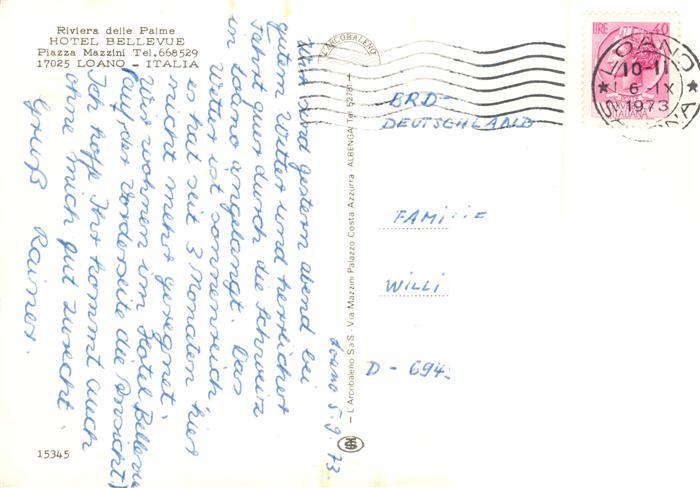 Riviera delle Palme
HOTEL BELLEVUE
Piazza Mazzini Tel. 668529
17025 LOANO - ITALIA
Loano 5.9.73.
sind gestern abend bei
gutem Wetter und herrlicher
Fahrt quer durch die Schweiz
in Loano angelangt. Das
Wetter ist sonnenreich
es hat seit 3 Monaten hier
nicht mehr geregnet.
Wir wohnen im Hotel Bellevue
(auf der Vorderseite die
Ich hoffe Ihr kommt auch
ohne mich gut zurecht.
Gruß Rainer.
15345
L'ARCOBALENO
— L'Arcobaleno S.a.S. - Via Mazzini Palazzo Costa Azzurra ALBENGA Tel. 52781 —
LIRE 40
ITALIANA
LOANO
10-11
6-IX
1973
BRD-
DEUTSCHLAND
FAMILIE
WILLI
D - 694